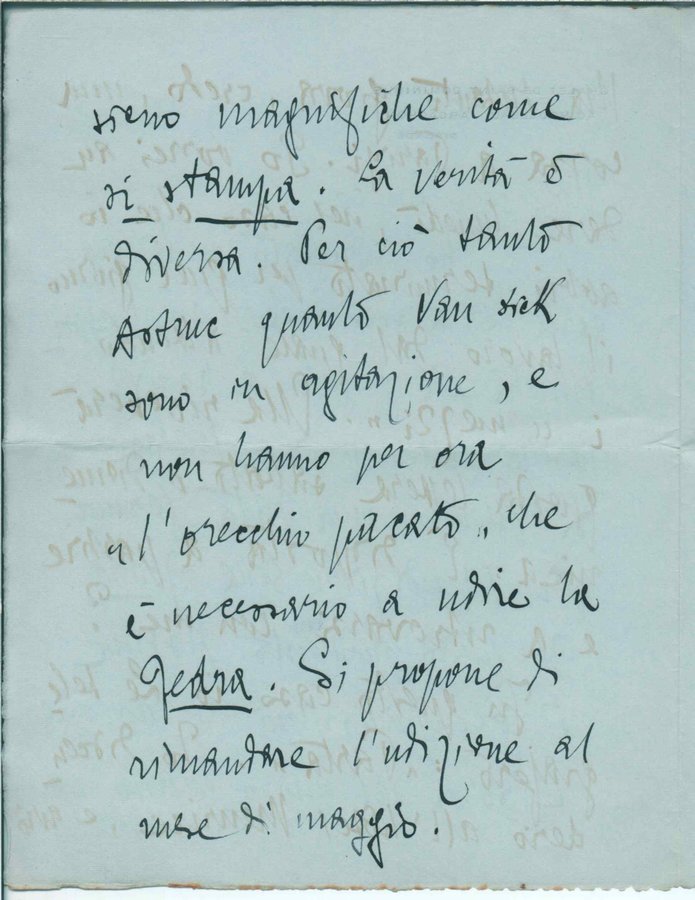 sieno magnifiche come
si stampa. La verità è
diversa. Per ciò tanto
Astruc quanto Van Dick
sono in agitazione, e
non hanno per ora
"l'orecchio pacato" che
è necessario a udire la
Fedra. Si propone di
rimandare l'udizione al
mese di maggio.